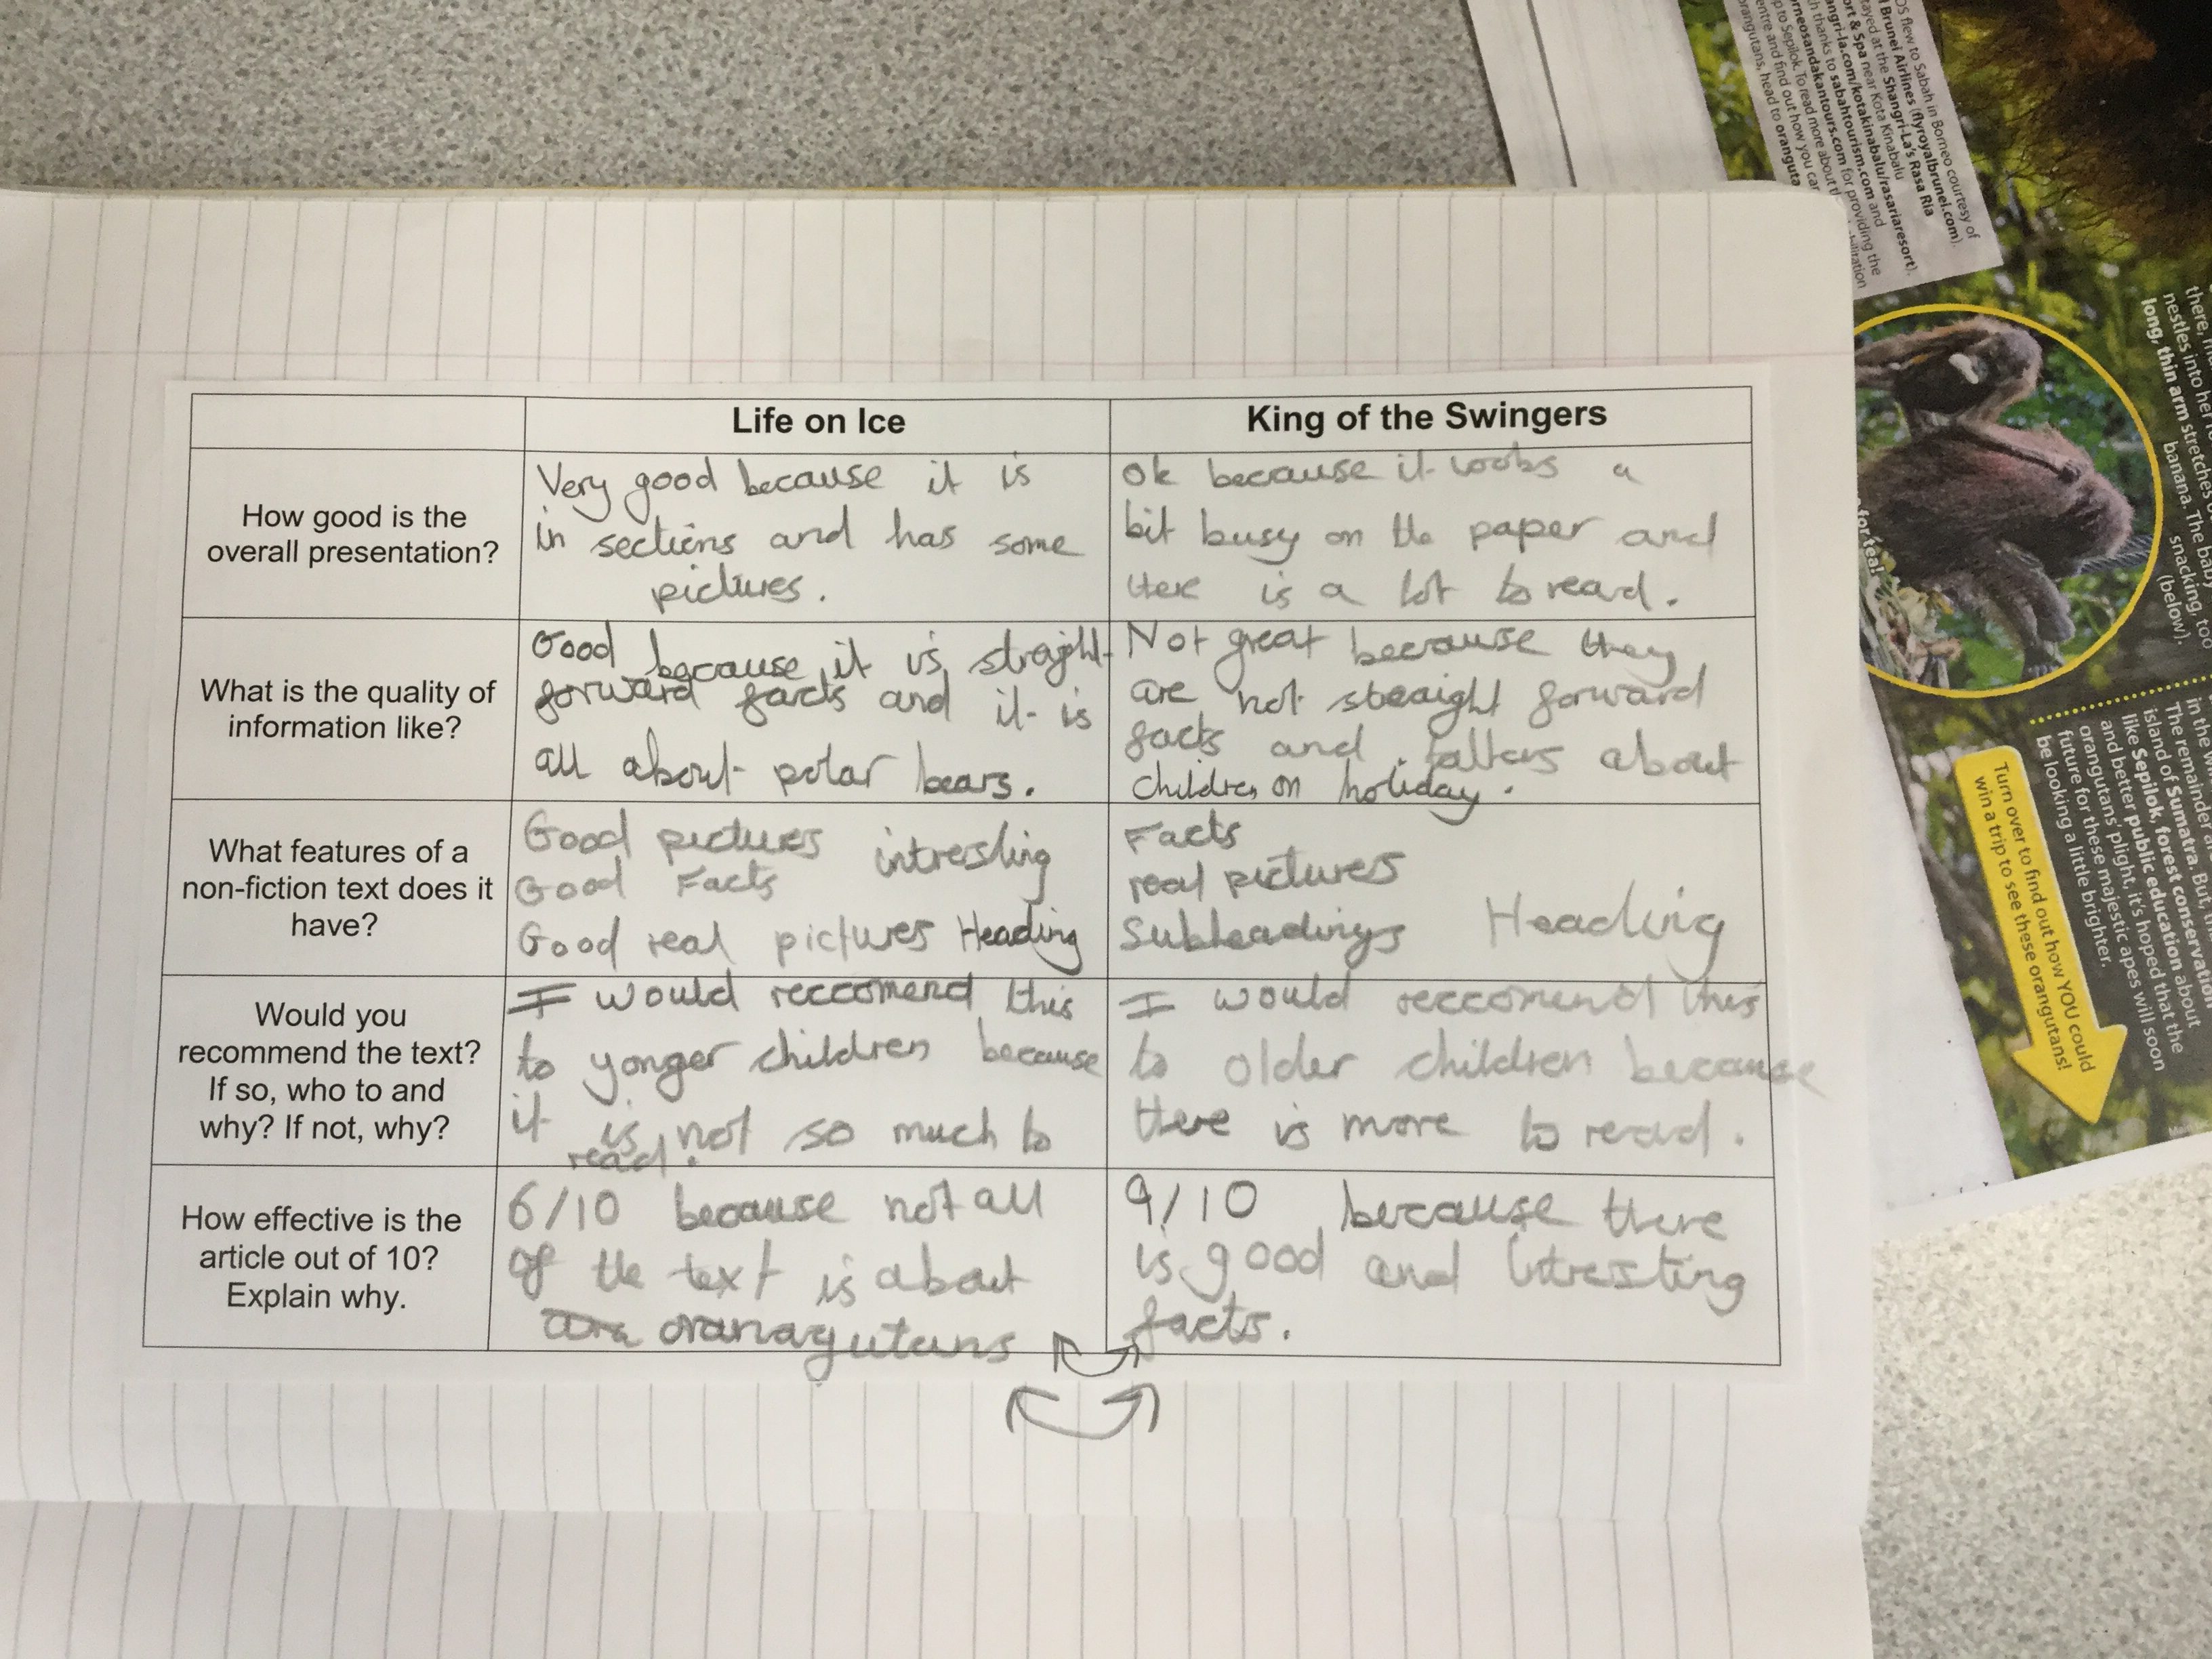 Life on Ice
King of the Swingers
How good is the
overall presentation?
Very good because it is
in sections and has some
pictures.
Ok because it looks a
bit busy on the paper and
there is a lot to read.
What is the quality of
information like?
Good because it is straight-
forward facts and it is
all about polar bears.
Not great because they
are not straight forward
facts and talkes about
children on holiday.
What features of a
non-fiction text does it
have?
Good pictures intresting
Good Facts
Good real pictures Heading
Facts
real pictures
Subheadings Heading
Would you
recommend the text?
If so, who to and
why? If not, why?
I would reccomend this
to yonger children because
it is not so much to
read.
I would reccomend this
to older children because
there is more to read.
How effective is the
article out of 10?
Explain why.
6/10 because not all
of the text is about
oranagutans
9/10 because there
is good and intresting
facts.
OS flew to Sabah in Borneo courtesy of
Brunei Airlines (flyroyalbrunei.com).
tayed at the Shangri-La's Rasa Ria
ort & Spa near Kota Kinabalu
angri-la.com/kotakinabalu/rasariaresort).
h thanks to sabahtourism.com and
orneosandakantours.com for providing the
p to Sepilok. To read more about
entre and find out how you car
orangutans, head to oranguta
for tea!
there,
nestles into her
long, thin arm stretches
banana. The baby
snacking, too
(below).
in the
The remainder
island of Sumatra. But,
like Sepilok, forest conservation
and better public education about
orangutans' plight, it's hoped that the
future for these majestic apes will soon
be looking a little brighter.
Turn over to find out how YOU could
win a trip to see these orangutans!